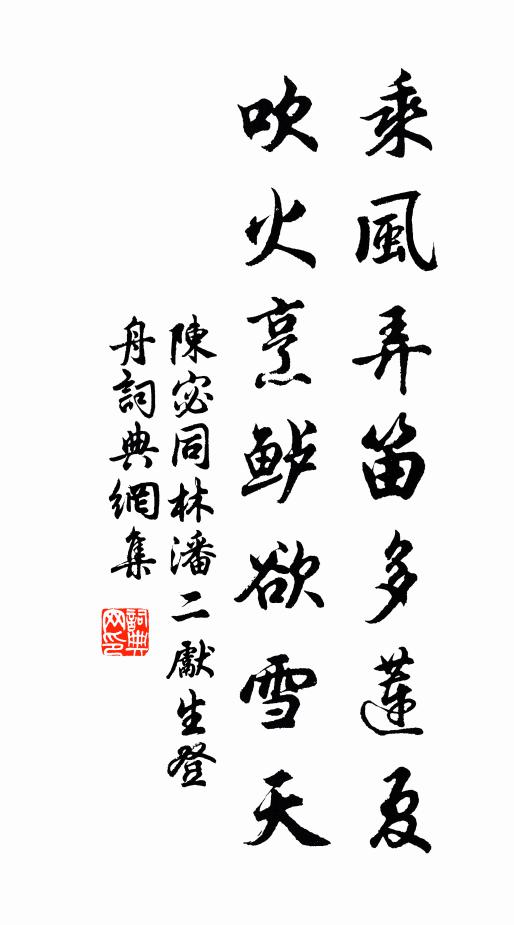 乘風弄笛多蓮夏
吹火烹鲈欲雪天
陳宓同林潘二獻生登
舟詞典網集
詞典
网印